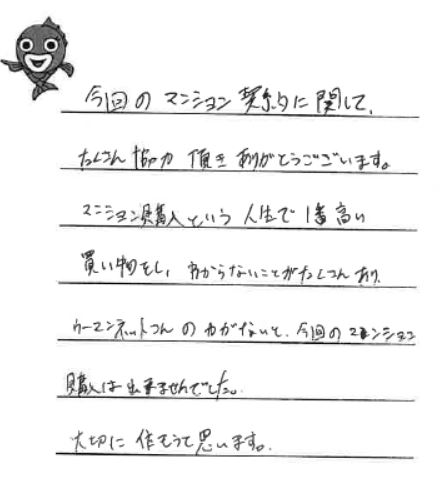 今回の マンション 契約に関して、
たくさん 協力 頂き ありがとうございます。
マンション購入という 人生で 1番 高い
買い物をし、わからないことがたくさん あり、
ウーマンネットさん の 力がないと、今回の マンション
購入は出来ませんでした。
大切に 住もうと思います。